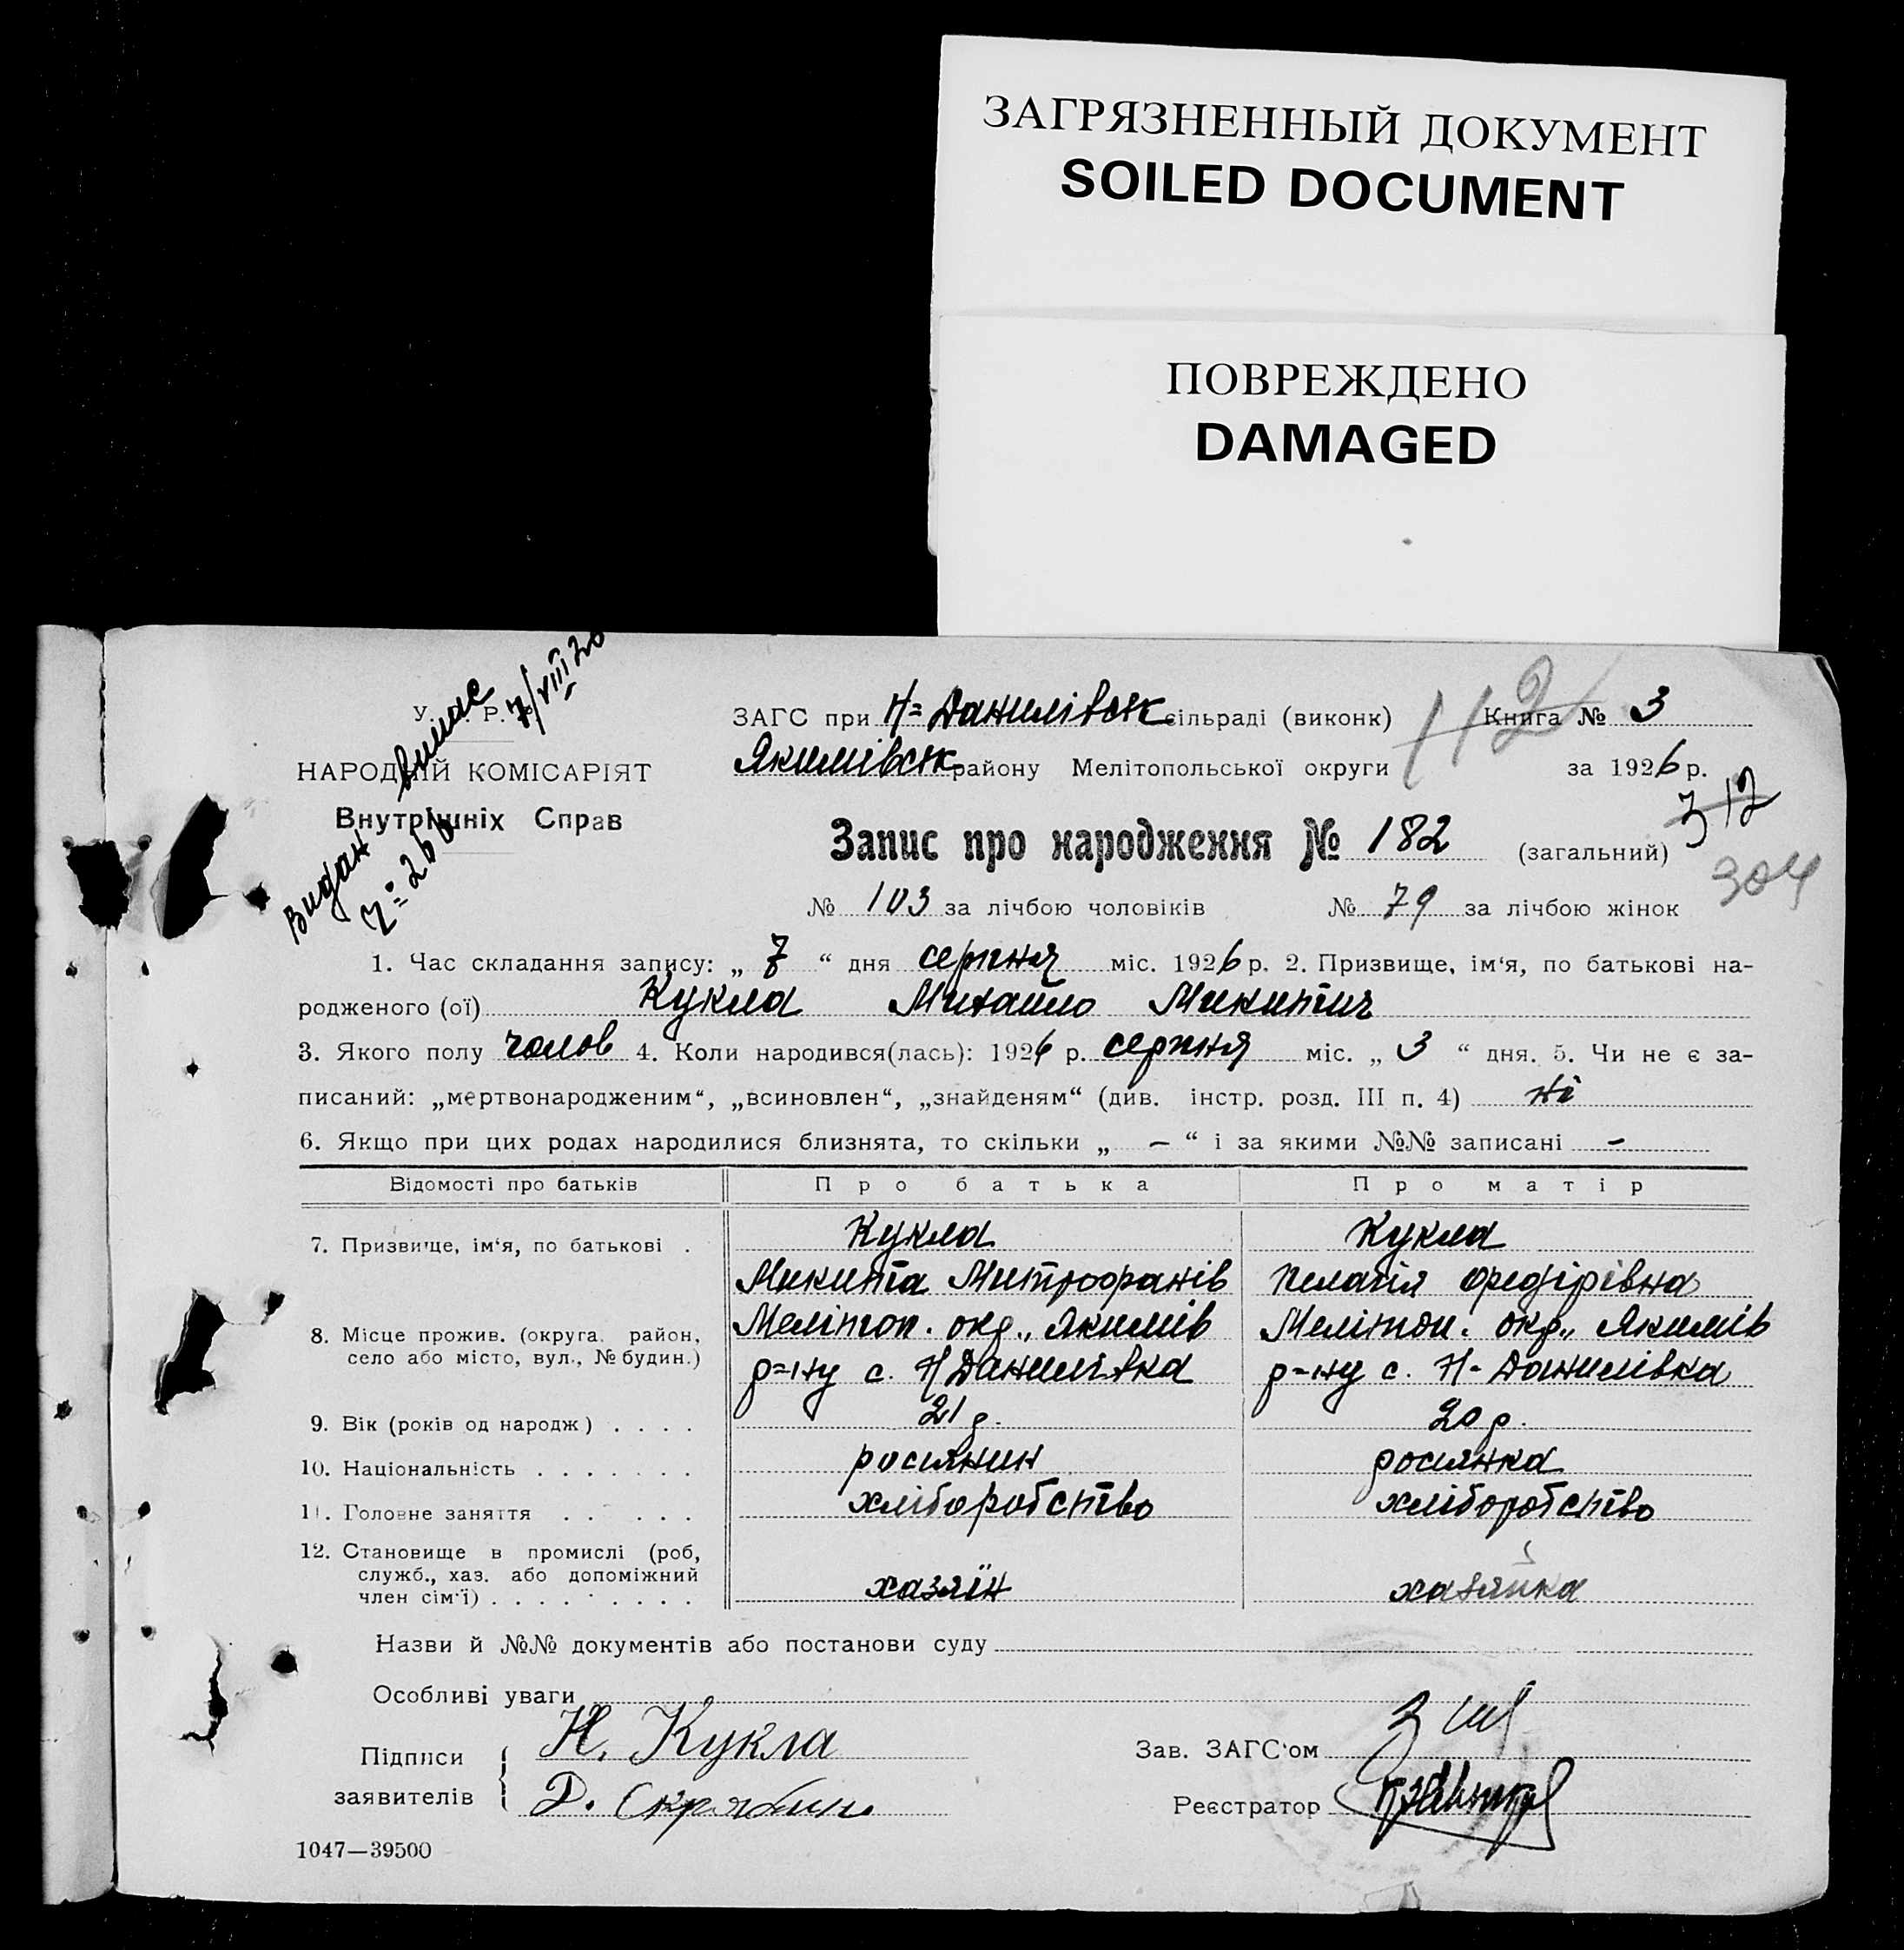 ЗАГРЯЗНЕННЫЙ ДОКУМЕНТ
SOILED DOCUMENT
ПОВРЕЖДЕНО
DAMAGED
Видан випис 7/VIII 26
У. Р.
НАРОДНІЙ КОМІСАРІЯТ
Внутрішніх Справ
ЗАГС при Н=Данилівськ сільраді (виконк)
Книга № 3
112
Якимівськ району Мелітопольської округи
за 1926 р.
312
Запис про народження № 182 (загальний)
304
№ 103 за лічбою чоловіків № 79 за лічбою жінок
1. Час складання запису: „ 7 “ дня серпня міс. 1926 р. 2. Призвище, ім‘я, по батькові на-
родженого (ої) Кукла Михайло Микитич
3. Якого полу чолов 4. Коли народився(лась): 1926 р. серпня міс. „ 3 “ дня. 5. Чи не є за-
писаний: „мертвонародженим“, „всиновлен“, „знайденям“ (див. інстр. розд. III п. 4) ні
6. Якщо при цих родах народилися близнята, то скільки „ – “ і за якими №№ записані –
Відомості про батьків Про батька Про матір
7. Призвище, ім‘я, по батькові . Кукла Кукла
Микита Митрофанів Пелагія Федірівна
8. Місце прожив. (округа, район, Меліпоп. окр., Якимів Меліпоп. окр., Якимів
село або місто, вул., № будин.) р=ну с. Н Данилівка р=ну с. Н-Данилівка
9. Вік (років од народж) . . . . 21 р. 20 р.
10. Національність . . . . . . . росіянин росіянка
11. Головне заняття . . . . . хліборобство хліборобство
12. Становище в промислі (роб,
служб., хаз. або допоміжний
член сім‘ї) . . . . . . . . . хазяїн хазяйка
Назви й №№ документів або постанови суду
Особливі уваги
Підписи
заявителів
Н. Кукла
Д. Скрябин
Зав. ЗАГС‘ом
Реєстратор
1047—39500